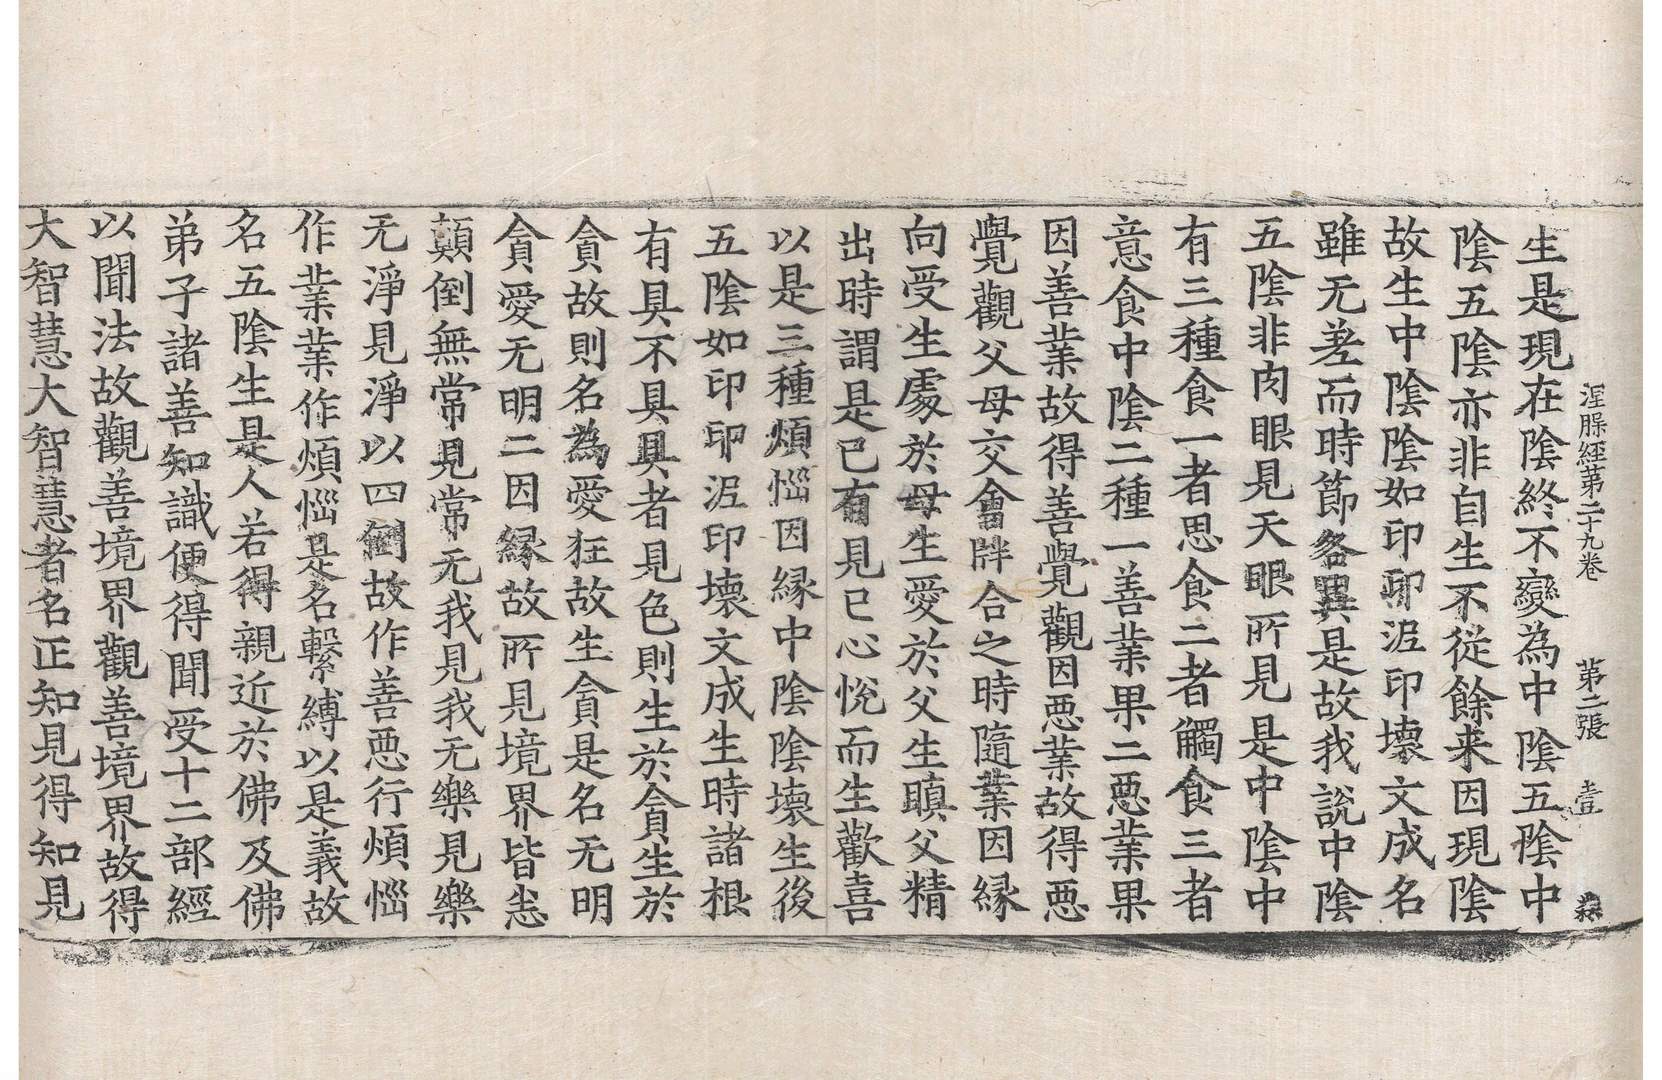 涅槃經第二十九卷　第二張　壹　森
生是現在陰終不變為中陰五陰中
陰五陰亦非自生不從餘来因現陰
故生中陰陰如印印泥印壞文成名
雖无差而時節各異是故我說中陰
五陰非肉眼見天眼所見是中陰中
有三種食一者思食二者觸食三者
意食中陰二種一善業果二惡業果
因善業故得善覺觀因惡業故得惡
覺觀父母交會牉合之時隨業因縁
向受生處於母生愛於父生瞋父精
出時謂是已有見已心悅而生歡喜
以是三種煩惱因縁中陰陰壞生後
五陰如印印泥印壞文成生時諸根
有具不具具者見色則生於貪生於
貪故則名為愛狂故生貪是名无明
貪愛无明二因縁故所見境界皆悉
顛倒無常見常无我見我无樂見樂
无淨見淨以四倒故作善惡行煩惱
作業業作煩惱是名繫縛以是義故
名五陰生是人若得親近於佛及佛
弟子諸善知識便得聞受十二部經
以聞法故觀善境界觀善境界故得
大智慧大智慧者名正知見得知見